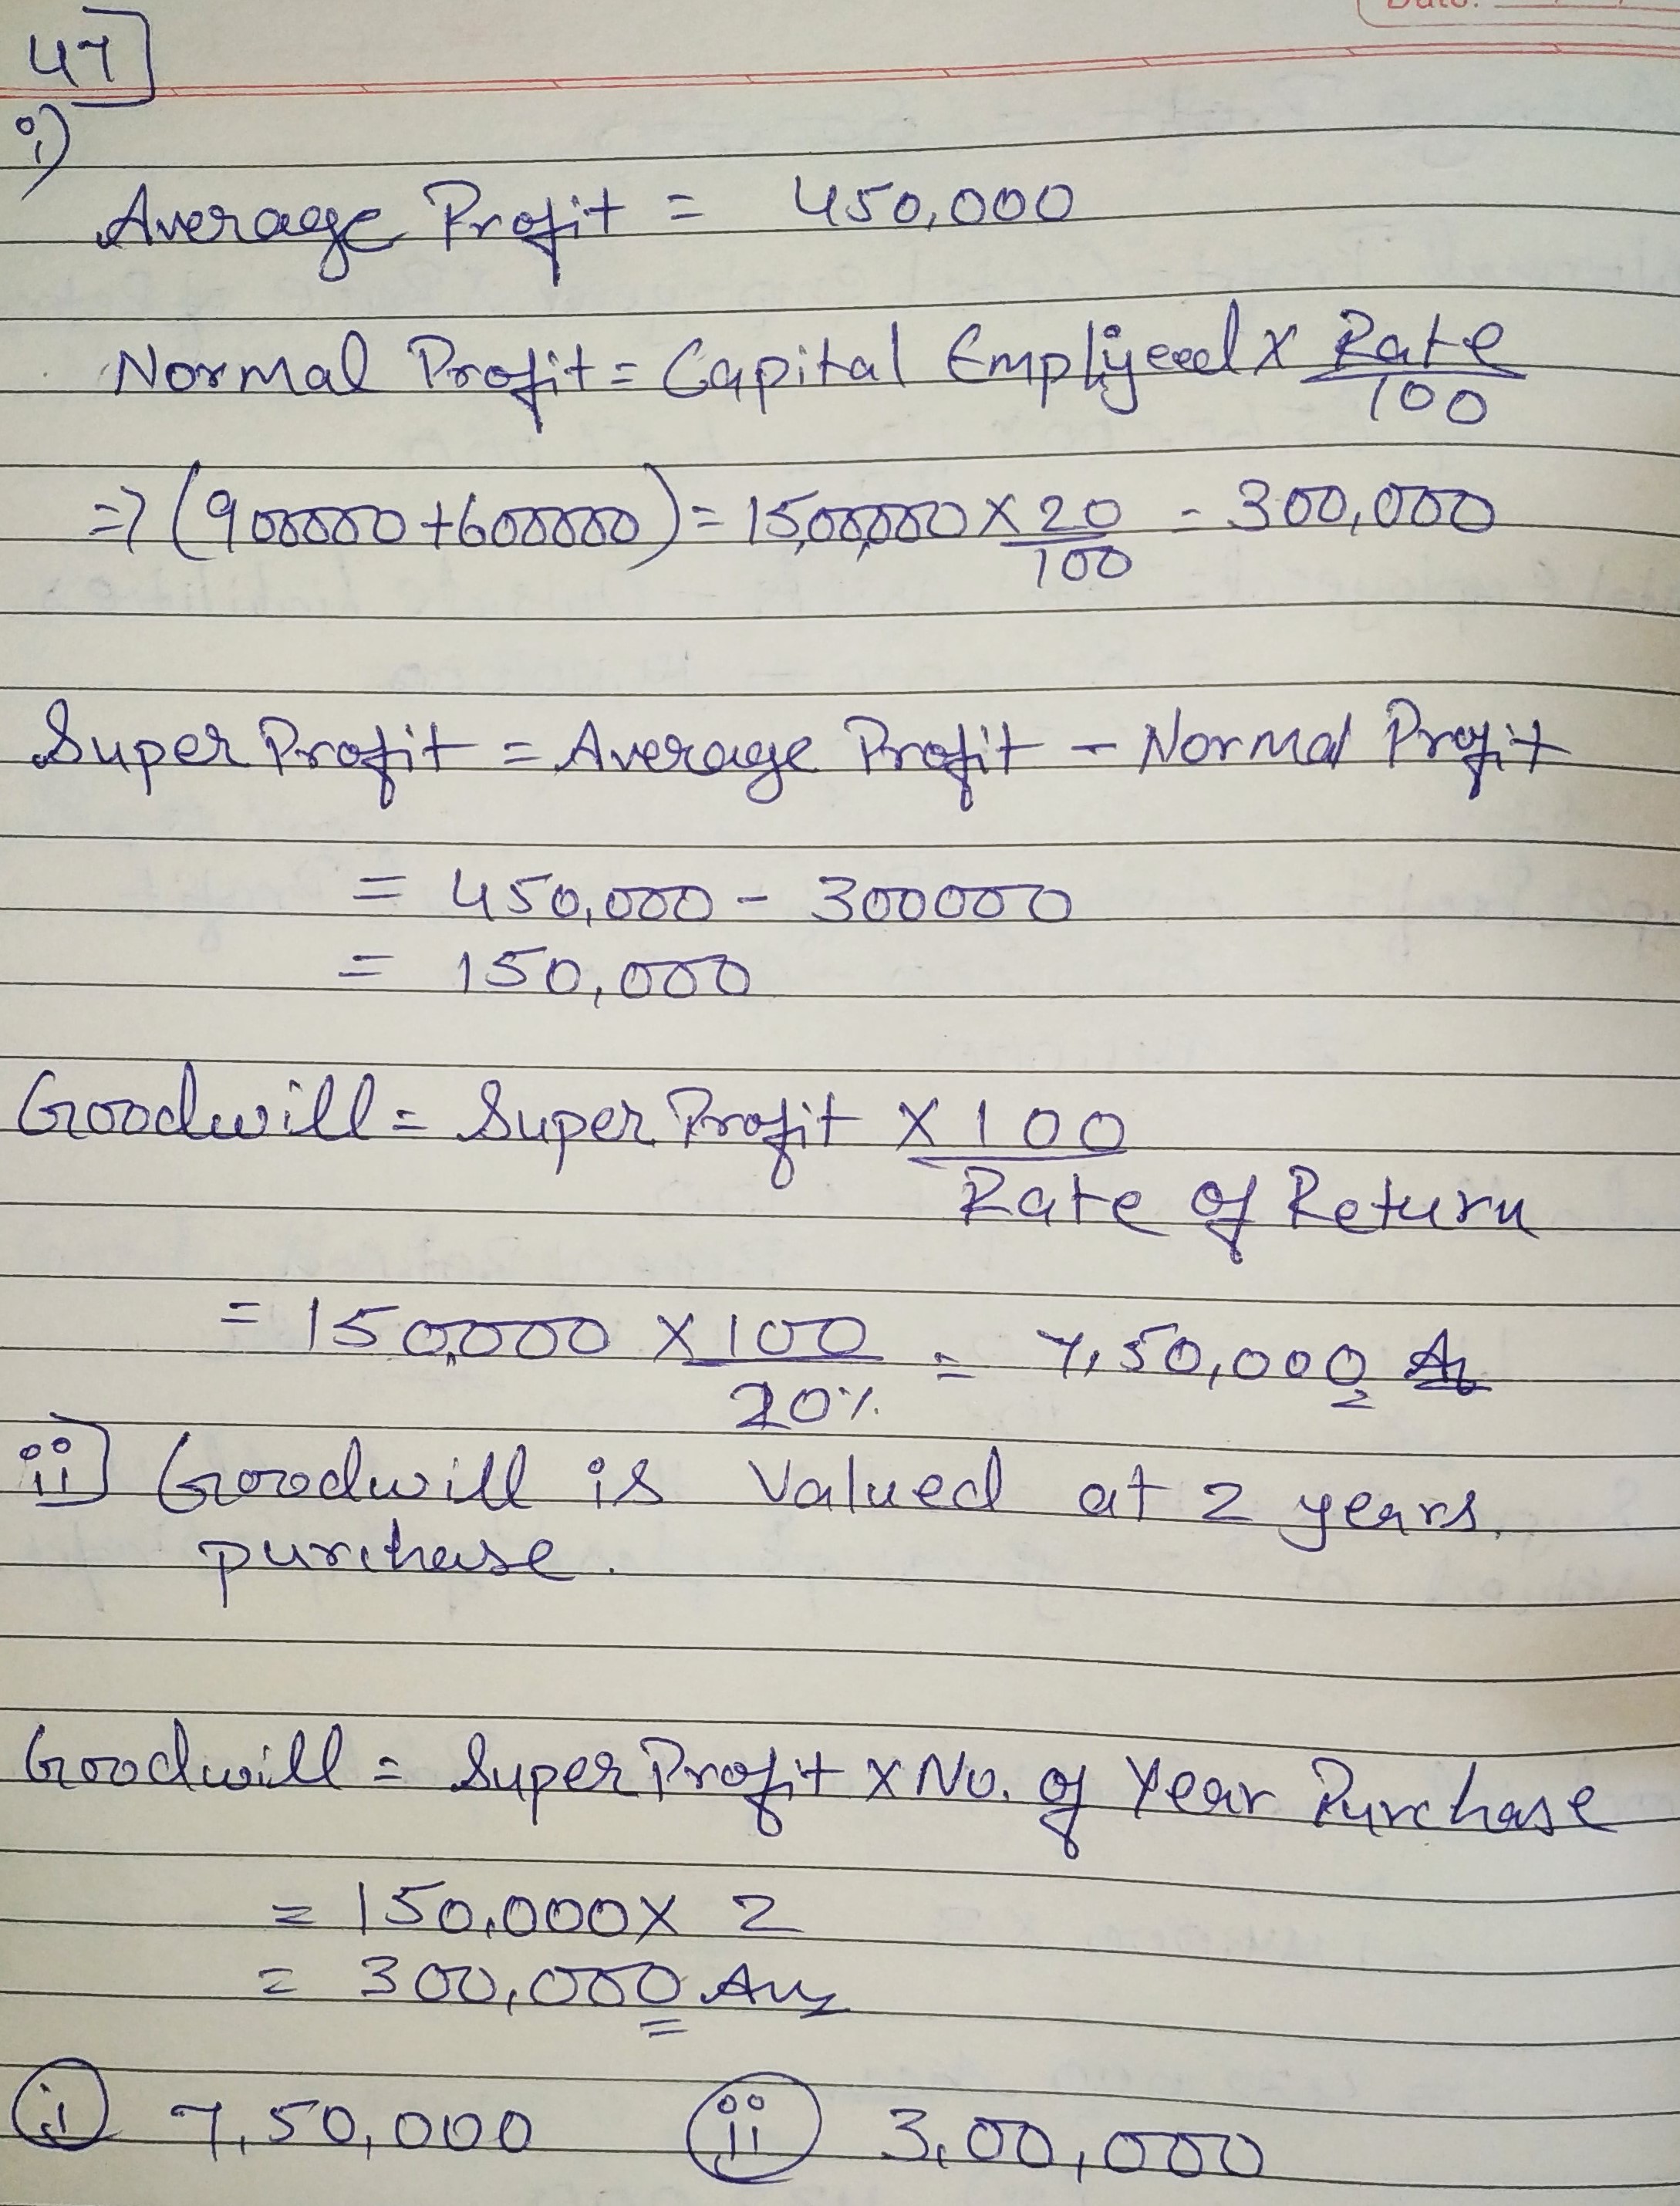 Date:
47]
i)
Average Profit = 450,000
Normal Profit = Capital Emplyeed x Rate/100
=> (900000+600000) = 15,00,000 x 20/100 = 300,000
Super Profit = Average Profit - Normal Profit
= 450,000 - 300000
= 150,000
Goodwill = Super Profit x 100/Rate of Return
= 150,000 x 100/20% = 7,50,000 A
ii] Goodwill is Valued at 2 years
purchase.
Goodwill = Super Profit x No. of Year Purchase
= 150,000 x 2
= 300,000 Ans
i 7,50,000 ii 3,00,000